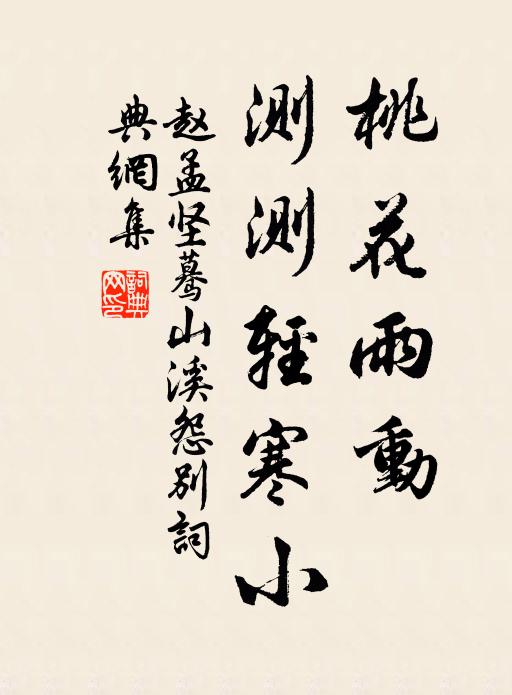 桃花雨動
測測輕寒小
赵孟坚蓦山溪怨別詞
典網集
詞典網印